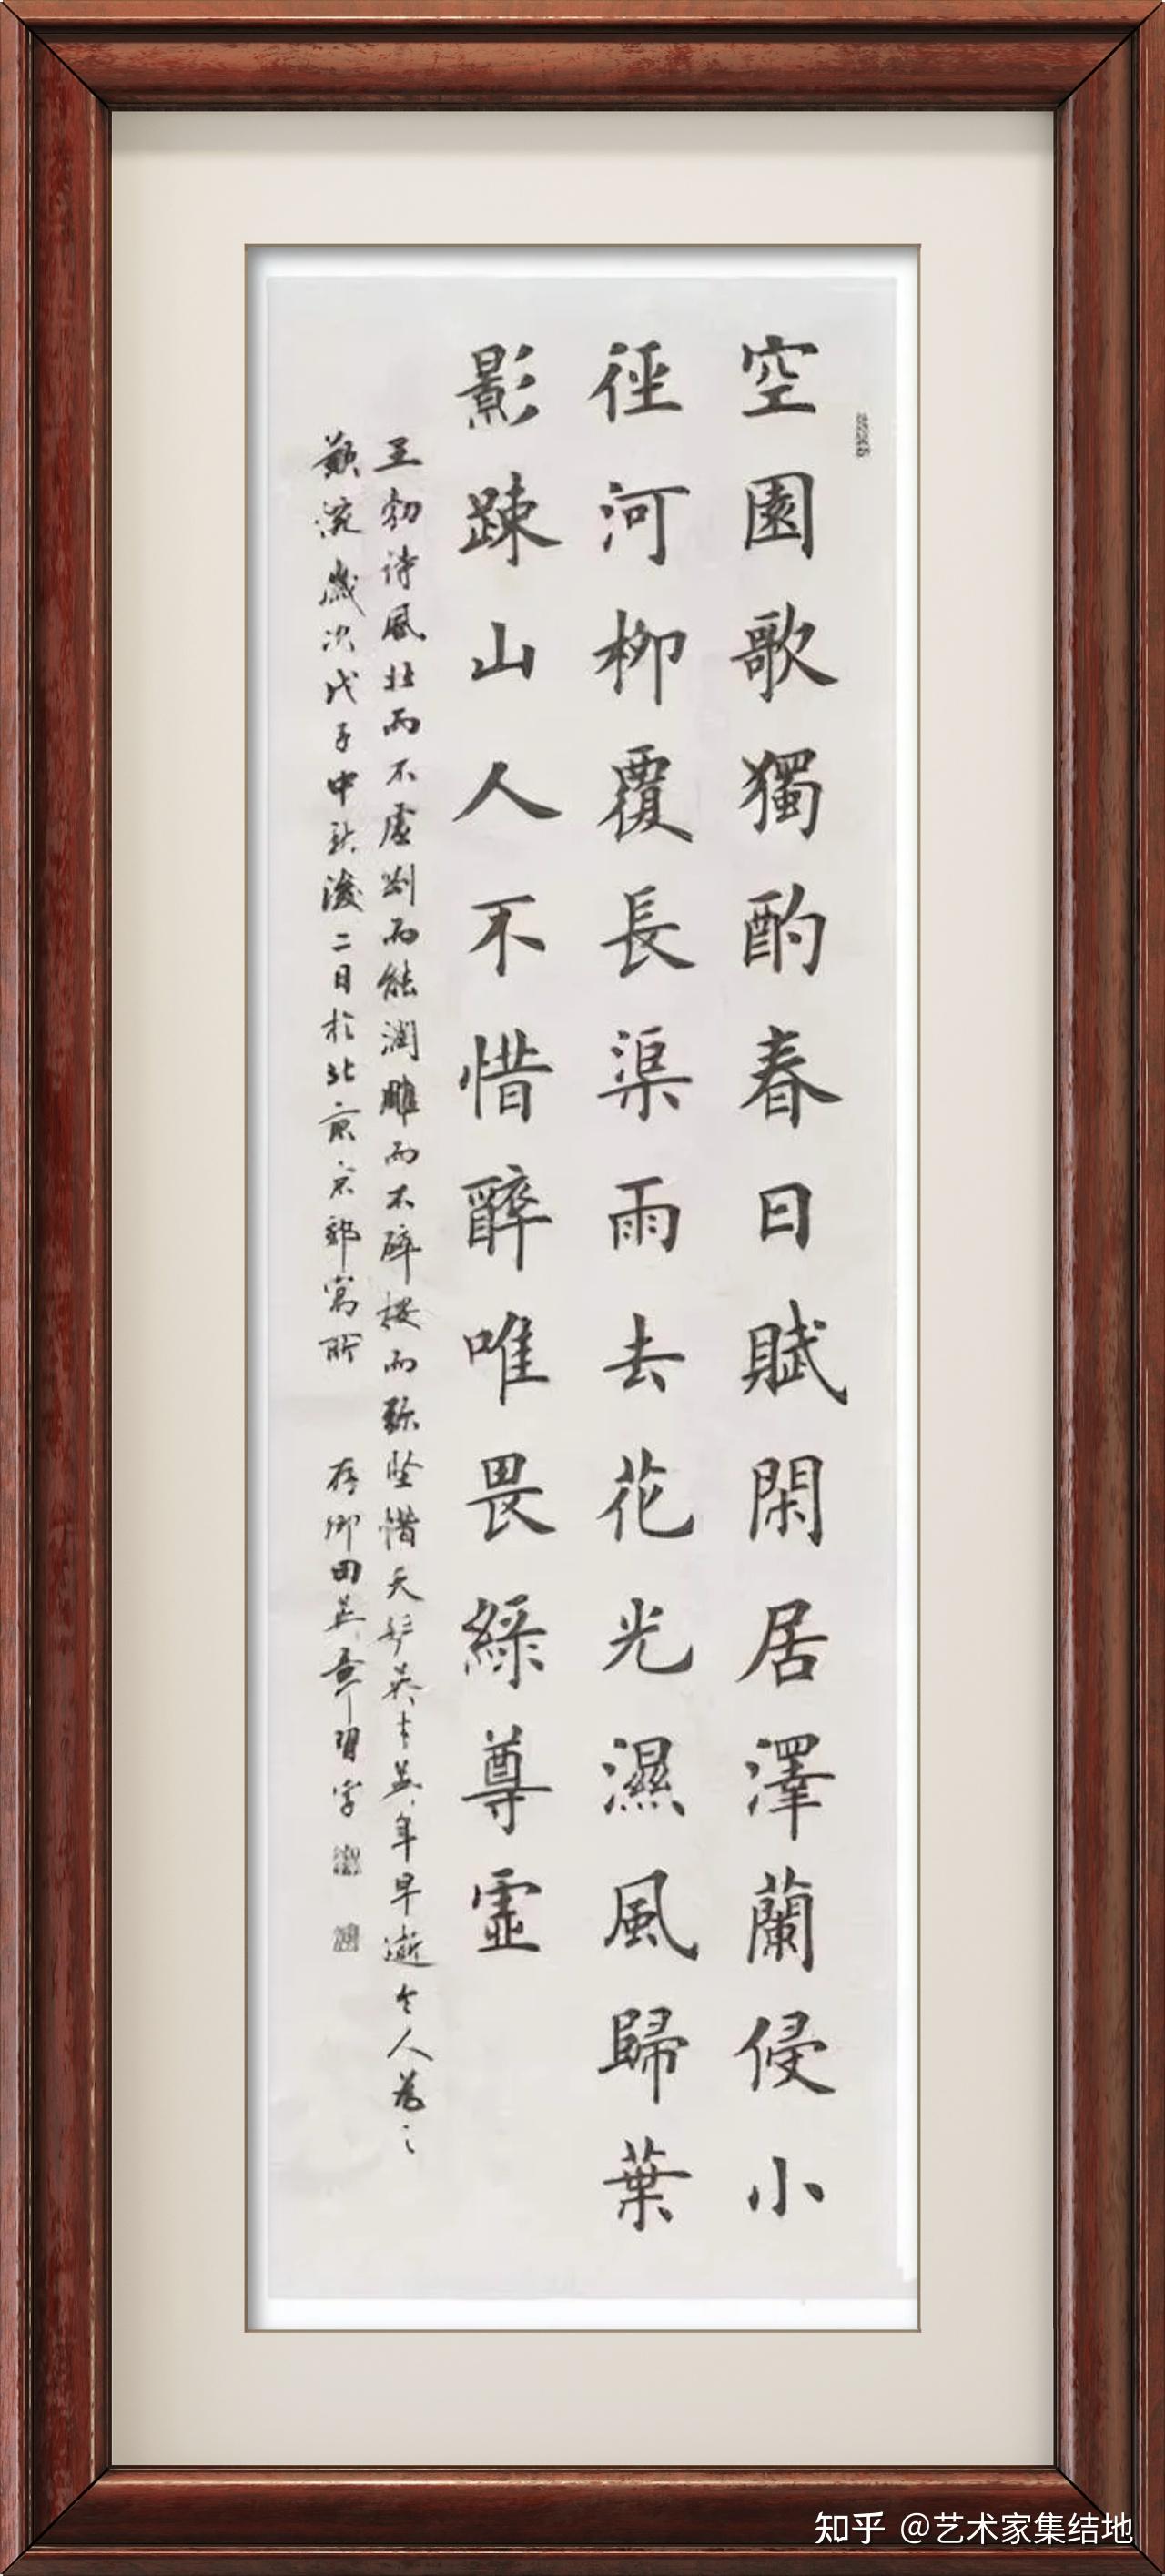 空園歌獨酌春日賦閑居澤蘭侵小
徑河柳覆長渠雨去花光濕風歸葉
影踈山人不惜醉唯畏綠尊虛
王勃詩風壯而不虛剛而能潤雕而不碎按而弥坚惜天妒英才英年早逝令人为之
歎惋歲次戊子中秋後二日於北京京郊寓所 存卿田英章習字
知乎 @艺术家集结地